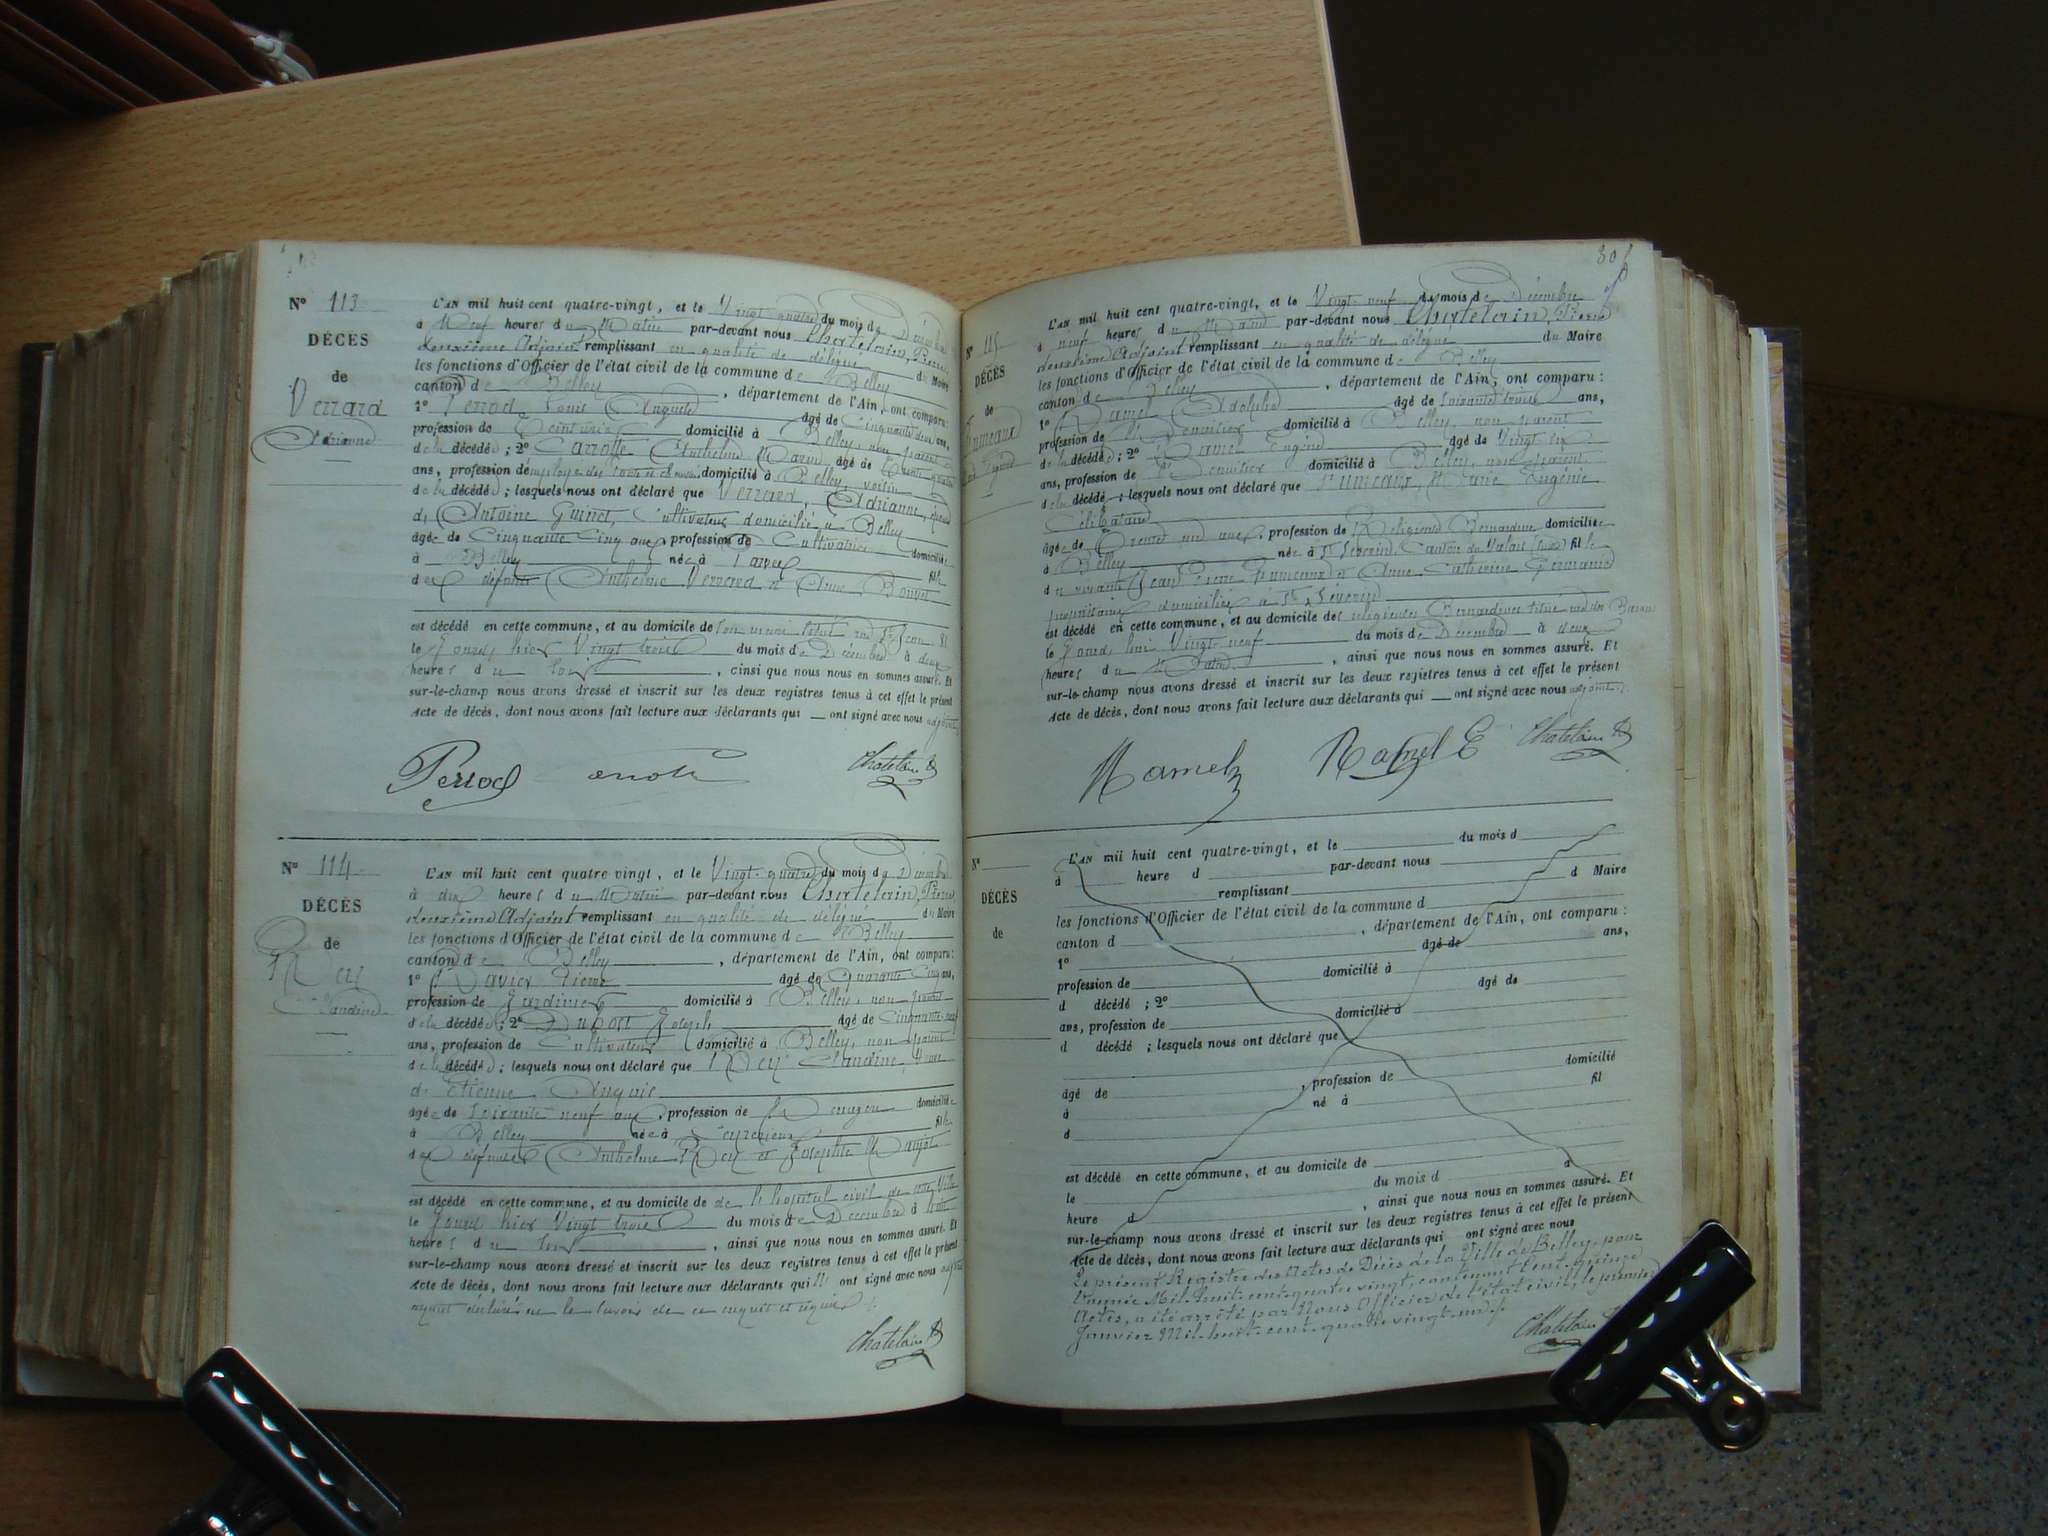 Nº 113
DÉCÈS
de
Verrard
Adrianne
L'AN mil huit cent quatre-vingt, et le Vingt quatre du mois de Décembre
à Neuf heures du Matin par-devant nous Chatelain, Pierre
deuxième Adjoint remplissant en qualité de délégué du Maire
les fonctions d'Officier de l'état civil de la commune de Belley
canton de Belley, département de l'Ain, ont comparu:
1º Perrod, Louis Auguste âgé de Cinquante deux ans,
profession de domicilié à Belley, non parent
de la décédée; 2º Carrotte Anthelme Marin âgé de Trente quatre
ans, profession de employé des domicilié à Belley, voisin
de la décédée; lesquels nous ont déclaré que Verrard, Adrianne, épouse
d'Antoine Guinet, Cultivateur domicilié à Belley
âgée de Cinquante Cinq ans, profession de Cultivatrice domiciliée
à Belley née à fille
des défunts Anthelme Verrard et Anne Bouvet
est décédé en cette commune, et au domicile de son mari situé rue St Jean 81
le Jour d'hier Vingt trois du mois de Décembre à deux
heures du soir, ainsi que nous nous en sommes assuré. Et
sur-le-champ nous avons dressé et inscrit sur les deux registres tenus à cet effet le présent
Acte de décès, dont nous avons fait lecture aux déclarants qui — ont signé avec nous adjoint
Perrod Chatelain P
Nº 114
DÉCÈS
de
Rey
Claudine
L'AN mil huit cent quatre vingt, et le Vingt-quatre du mois de Décembre
à dix heures du Matin par-devant nous Chatelain, Pierre
deuxième Adjoint remplissant en qualité de délégué du Maire
les fonctions d'Officier de l'état civil de la commune de Belley
canton de Belley, département de l'Ain, ont comparu:
1º Ravier Pierre âgé de Quarante Cinq ans,
profession de Jardinier domicilié à Belley, non parent
de la décédée; 2º Dubost Joseph âgé de Cinquante
ans, profession de Cultivateur domicilié à Belley, non parent
de la décédée; lesquels nous ont déclaré que Rey Claudine, Veuve
de Etienne
âgée de Soixante neuf ans, profession de domiciliée
à Belley née à Ceyzérieu fille
des défunts Anthelme Rey et Josephte
est décédé en cette commune, et au domicile de de l'hôpital civil de cette Ville
le Jour d'hier Vingt trois du mois de Décembre à huit
heures du soir, ainsi que nous nous en sommes assuré. Et
sur-le-champ nous avons dressé et inscrit sur les deux registres tenus à cet effet le présent
Acte de décès, dont nous avons fait lecture aux déclarants qui n' ont signé avec nous adjoint
ayant déclaré ne le savoir de ce enquis et requis
Chatelain P
Nº 115
DÉCÈS
de
Fumeaux
L'AN mil huit cent quatre-vingt, et le Vingt-neuf du mois de Décembre
à neuf heures du Matin par-devant nous Chatelain, Pierre
deuxième Adjoint remplissant en qualité de délégué du Maire
les fonctions d'Officier de l'état civil de la commune de Belley
canton de Belley, département de l'Ain, ont comparu:
1º Ramel Adolphe âgé de Soixante trois ans,
profession de Menuisier domicilié à Belley, non parent
de la décédée; 2º Ramel Eugène âgé de Vingt six
ans, profession de Menuisier domicilié à Belley, non parent
de la décédée; lesquels nous ont déclaré que Fumeaux, Marie Eugénie
Célibataire
âgée de Trente un ans, profession de Religieuse Bernardine domiciliée
à Belley née à St Séverin, Canton du Valais fille
de vivants Jean Pierre Fumeaux et Anne Catherine Germanier
propriétaires domiciliés à St Séverin
est décédé en cette commune, et au domicile des religieuses Bernardines situé
le Jour d'hui Vingt neuf du mois de Décembre à deux
heures du Matin, ainsi que nous nous en sommes assuré. Et
sur-le-champ nous avons dressé et inscrit sur les deux registres tenus à cet effet le présent
Acte de décès, dont nous avons fait lecture aux déclarants qui — ont signé avec nous adjoint
Ramel Ramel E Chatelain P
Nº
DÉCÈS
de
L'AN mil huit cent quatre-vingt, et le du mois d
à heure d par-devant nous
remplissant d Maire
les fonctions d'Officier de l'état civil de la commune d
canton d, département de l'Ain, ont comparu:
1º âgé de ans,
profession de domicilié à
d décédé; 2º âgé de
ans, profession de domicilié à
d décédé; lesquels nous ont déclaré que
âgé de, profession de domicilié
à né à fil
d
est décédé en cette commune, et au domicile de
le du mois d à
heure d, ainsi que nous nous en sommes assuré. Et
sur-le-champ nous avons dressé et inscrit sur les deux registres tenus à cet effet le présent
Acte de décès, dont nous avons fait lecture aux déclarants qui ont signé avec nous
Le présent Registre des Actes de Décès de la Ville de Belley, pour
l'année Mil-huit-cent-quatre-vingt, contenant Cent quinze
Actes, a été arrêté par Nous Officier de l'état civil, le premier
Janvier Mil-huit-cent-quatre-vingt-un.
Chatelain